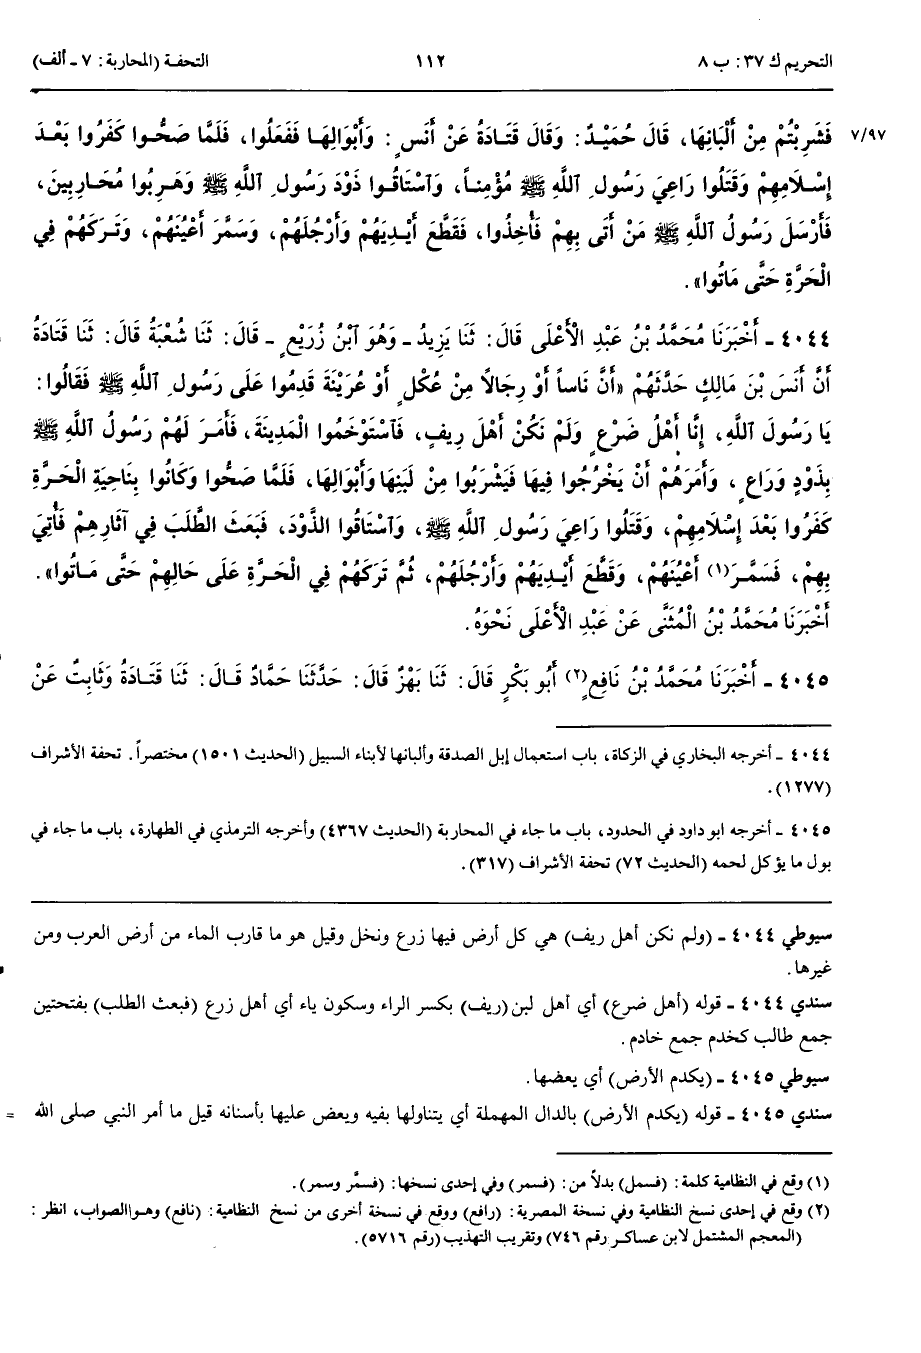 التحريم ك ٣٧: ب ٨ ١١٢ التحفة (المحاربة: ٧ ـ ألف)
٧/٩٧ فَشَرِبْتُمْ مِنْ أَلْبَانِهَا، قَالَ حُمَيْدٌ: وَقَالَ قَتَادَةُ عَنْ أَنَسٍ: وَأَبْوَالِهَا فَفَعَلُوا، فَلَمَّا صَحُّوا كَفَرُوا بَعْدَ
إِسْلَامِهِمْ وَقَتَلُوا رَاعِيَ رَسُولِ اللَّهِ ﷺ مُؤْمِناً، وَاسْتَاقُوا ذَوْدَ رَسُولِ اللَّهِ ﷺ وَهَرِبُوا مُحَارِبِينَ،
فَأَرْسَلَ رَسُولُ اللَّهِ ﷺ مَنْ أَتَى بِهِمْ فَأُخِذُوا، فَقَطَّعَ أَيْدِيَهُمْ وَأَرْجُلَهُمْ، وَسَمَّرَ أَعْيُنَهُمْ، وَتَرَكَهُمْ فِي
الْحَرَّةِ حَتَّى مَاتُوا».
٤٠٤٤ ـ أَخْبَرَنَا مُحَمَّدُ بْنُ عَبْدِ الْأَعْلَى قَالَ: ثَنَا يَزِيدُ ـ وَهُوَ ابْنُ زُرَيْعٍ ـ قَالَ: ثَنَا شُعْبَةُ قَالَ: ثَنَا قَتَادَةُ
أَنَّ أَنَسَ بْنَ مَالِكٍ حَدَّثَهُمْ «أَنَّ نَاساً أَوْ رِجَالاً مِنْ عُكْلٍ أَوْ عُرَيْنَةَ قَدِمُوا عَلَى رَسُولِ اللَّهِ ﷺ فَقَالُوا:
يَا رَسُولَ اللَّهِ، إِنَّا أَهْلُ ضَرْعٍ وَلَمْ نَكُنْ أَهْلَ رِيفٍ، فَاسْتَوْخَمُوا الْمَدِينَةَ، فَأَمَرَ لَهُمْ رَسُولُ اللَّهِ ﷺ
بِذَوْدٍ وَرَاعٍ، وَأَمَرَهُمْ أَنْ يَخْرُجُوا فِيهَا فَيَشْرَبُوا مِنْ لَبَنِهَا وَأَبْوَالِهَا، فَلَمَّا صَحُّوا وَكَانُوا بِنَاحِيَةِ الْحَرَّةِ
كَفَرُوا بَعْدَ إِسْلَامِهِمْ، وَقَتَلُوا رَاعِيَ رَسُولِ اللَّهِ ﷺ، وَاسْتَاقُوا الذَّوْدَ، فَبَعَثَ الطَّلَبَ فِي آثَارِهِمْ فَأُتِيَ
بِهِمْ، فَسَمَّرَ(١) أَعْيُنَهُمْ، وَقَطَّعَ أَيْدِيَهُمْ وَأَرْجُلَهُمْ، ثُمَّ تَرَكَهُمْ فِي الْحَرَّةِ عَلَى حَالِهِمْ حَتَّى مَاتُوا».
أَخْبَرَنَا مُحَمَّدُ بْنُ الْمُثَنَّى عَنْ عَبْدِ الْأَعْلَى نَحْوَهُ.
٤٠٤٥ ـ أَخْبَرَنَا مُحَمَّدُ بْنُ نَافِعٍ(٢) أَبُو بَكْرٍ قَالَ: ثَنَا بَهْزٌ قَالَ: حَدَّثَنَا حَمَّادٌ قَالَ: ثَنَا قَتَادَةُ وَثَابِتٌ عَنْ
٤٠٤٤ ـ أخرجه البخاري في الزكاة، باب استعمال إبل الصدقة وألبانها لأبناء السبيل (الحديث ١٥٠١) مختصراً. تحفة الأشراف
(١٢٧٧).
٤٠٤٥ ـ أخرجه ابو داود في الحدود، باب ما جاء في المحاربة (الحديث ٤٣٦٧) وأخرجه الترمذي في الطهارة، باب ما جاء في
بول ما يؤكل لحمه (الحديث ٧٢) تحفة الأشراف (٣١٧).
سيوطي ٤٠٤٤ ـ (ولم نكن أهل ريف) هي كل أرض فيها زرع ونخل وقيل هو ما قارب الماء من أرض العرب ومن
غيرها.
سندي ٤٠٤٤ ـ قوله (أهل ضرع) أي أهل لبن (ريف) بكسر الراء وسكون ياء أي أهل زرع (فبعث الطلب) بفتحتين
جمع طالب كخدم جمع خادم.
سيوطي ٤٠٤٥ ـ (يكدم الأرض) أي يعضها.
سندي ٤٠٤٥ ـ قوله (يكدم الأرض) بالدال المهملة أي يتناولها بفيه ويعض عليها بأسنانه قيل ما أمر النبي صلى الله =
(١) وقع في النظامية كلمة: (فسمل) بدلاً من: (فسمر) وفي إحدى نسخها: (فسمَّر وسمر).
(٢) وقع في إحدى نسخ النظامية وفي نسخة المصرية: (رافع) ووقع في نسخة أخرى من نسخ النظامية: (نافع) وهو الصواب، انظر:
(المعجم المشتمل لابن عساكر رقم ٧٤٦) وتقريب التهذيب (رقم ٥٧١٦).